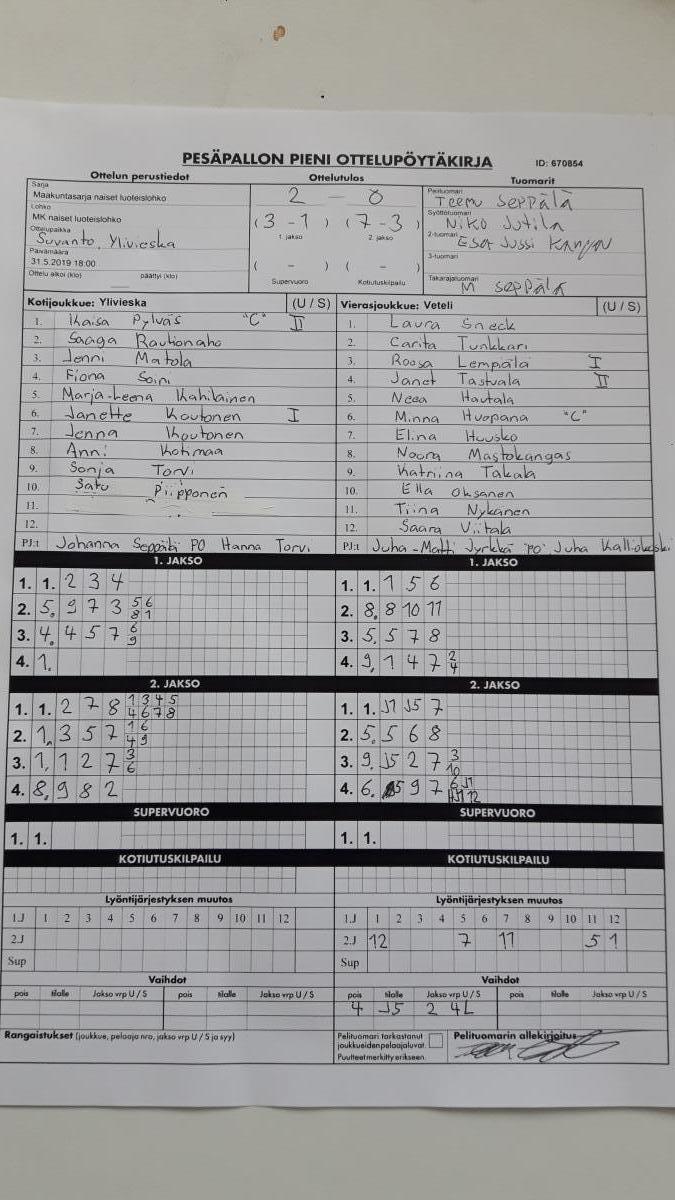 PESÄPALLON PIENI OTTELUPÖYTÄKIRJA ID: 670854
Ottelun perustiedot Ottelutulos Tuomarit
Sarja
Maakuntasarja naiset luoteislohko
Lohko
MK naiset luoteislohko
Ottelupaikka
Suvanto, Ylivieska
Päivämäärä
31.5.2019 18:00
Ottelu alkoi (klo) päättyi (klo)
2 - 0
(3 - 1) (7 - 3)
1. jakso 2. jakso
( - ) ( - )
Supervuoro Kotiutuskilpailu
Pelituomari
Teemu Seppälä
Syöttötuomari
Niko Jutila
2-tuomari
Esa Jussi
3-tuomari
Takarajatuomari
M Seppälä
Kotijoukkue: Ylivieska (U / S)
1. Kaisa Pylväs "C" II
2. Saaga Rautionaho
3. Jenni Matola
4. Fiona Soini
5. Marja-Leena Kahilainen
6. Janette Koutonen I
7. Jenna Koutonen
8. Anni Kotimaa
9. Sonja Torvi
10. Satu Piipponen
11.
12.
PJ:t Johanna Seppälä PO Hanna Torvi
Vierasjoukkue: Veteli (U / S)
1. Laura Sneck
2. Carita Tunkkari
3. Roosa Lempiälä I
4. Janet Tastula II
5. Neea Hautala
6. Minna Huopana "C"
7. Elina Huusko
8. Noora Mastokangas
9. Katriina Takala
10. Ella Oksanen
11. Tiina Nykänen
12. Saara Viitala
PJ:t Juha-Matti Jyrkkä PO Juha
1. JAKSO
1. 1. 2 3 4
2. 5. 9 7 3 5 6 8 1
3. 4. 4 5 7 6 9
4. 1.
1. JAKSO
1. 1. 1 5 6
2. 8. 8 10 11
3. 5. 5 7 8
4. 9. 1 4 7 2 4
2. JAKSO
1. 1. 2 7 8 1 3 4 5 4 6 7 8
2. 1. 3 5 7 1 6 4 9
3. 1. 1 2 7 3 6
4. 8. 9 8 2
2. JAKSO
1. 1. J1 J5 7
2. 5. 5 6 8
3. 9. J5 2 7 3 10
4. 6. 9 7
SUPERVUORO
1. 1.
SUPERVUORO
1. 1.
KOTIUTUSKILPAILU
KOTIUTUSKILPAILU
Lyöntijärjestyksen muutos
1.J 1 2 3 4 5 6 7 8 9 10 11 12
2.J
Sup
Lyöntijärjestyksen muutos
1.J 1 2 3 4 5 6 7 8 9 10 11 12
2.J 12 7 11 5 1
Sup
Vaihdot
pois tilalle Jakso vrp U / S pois tilalle Jakso vrp U / S
Vaihdot
pois tilalle Jakso vrp U / S pois tilalle Jakso vrp U / S
4 J5 2 4L
Rangaistukset (joukkue, pelaaja nro, jakso vrp U / S ja syy)
Pelituomari tarkastanut
joukkueiden pelaajaluvat.
Puutteet merkitty erikseen.
Pelituomarin allekirjoitus